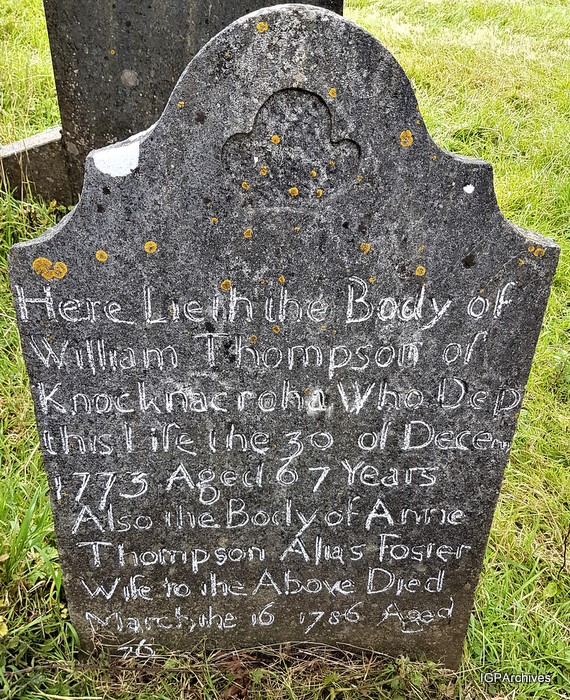 Here Lieth the Body of
William Thompson of
Knocknacroha Who Dep
this Life the 30 of Decem
1773 Aged 67 Years
Also the Body of Anne
Thompson Alias Foster
Wife to the Above Died
March the 16 1786 Aged
76
IGPArchives